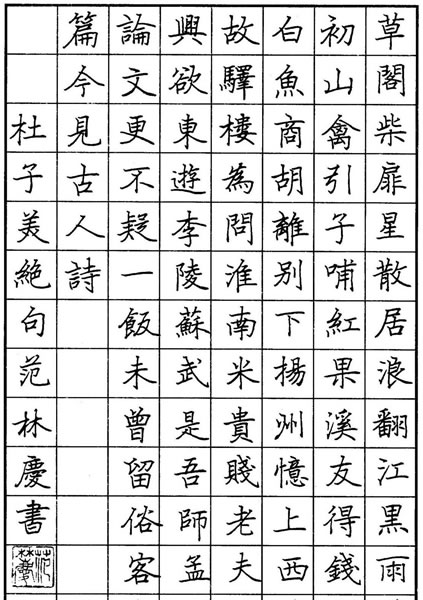 草閣柴扉星散居浪翻江黑雨
初山禽引子哺紅果溪友得錢
白魚商胡離別下楊州憶上西
故驛樓為問淮南米貴賤老夫
興欲東遊李陵蘇武是吾師孟
論文更不疑一飯未曾留俗客
篇今見古人詩
杜子美絕句范林慶書
范林慶